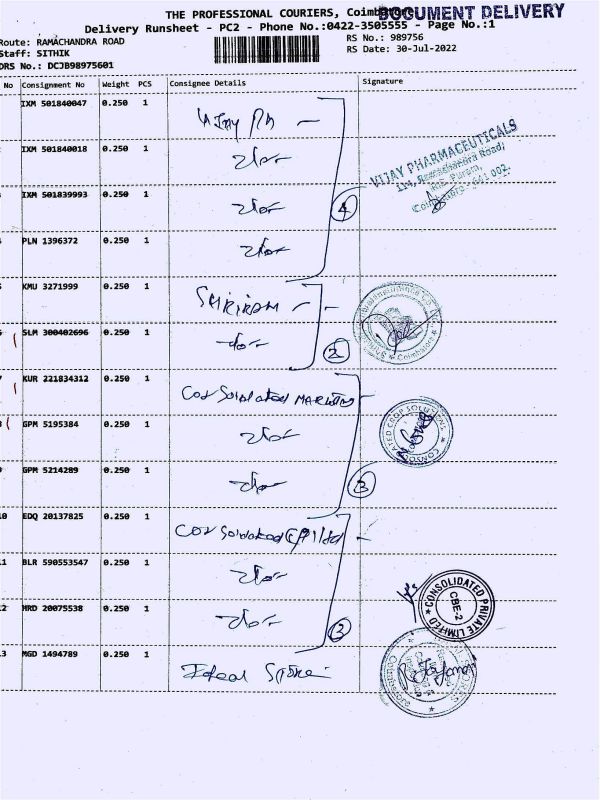 THE PROFESSIONAL COURIERS, Coimbatore
DOCUMENT DELIVERY
Delivery Runsheet - PC2 - Phone No.:0422-3505555 - Page No.:1
Route: RAMACHANDRA ROAD
RS No.: 989756
Staff: SITHIK
RS Date: 30-Jul-2022
DRS No.: DCJB98975601
No Consignment No Weight PCS Consignee Details Signature
IXM 501840047 0.250 1 Vijay Ph
IXM 501840018 0.250 1
VIJAY PHARMACEUTICALS
114, Ramachandra Road,
R.S. Puram,
Coimbatore - 641 002.
IXM 501839993 0.250 1
4
PLN 1396372 0.250 1
KMU 3271999 0.250 1 SHRIRAM
Coimbatore
SLM 300402696 0.250 1 -do-
2
KUR 221834312 0.250 1 Consolidated MARketing
CONSOLIDATED CROP SOLUTIONS
8 GPM 5195384 0.250 1
9 GPM 5214289 0.250 1 -do-
3
10 EDQ 20137825 0.250 1 Consolidated C P Ltd
11 BLR 590553547 0.250 1
CONSOLIDATED PRIVATE LIMITED
CBE-2
12 HRD 20075538 0.250 1 -do-
3
13 MGD 1494789 0.250 1 Ideal Store